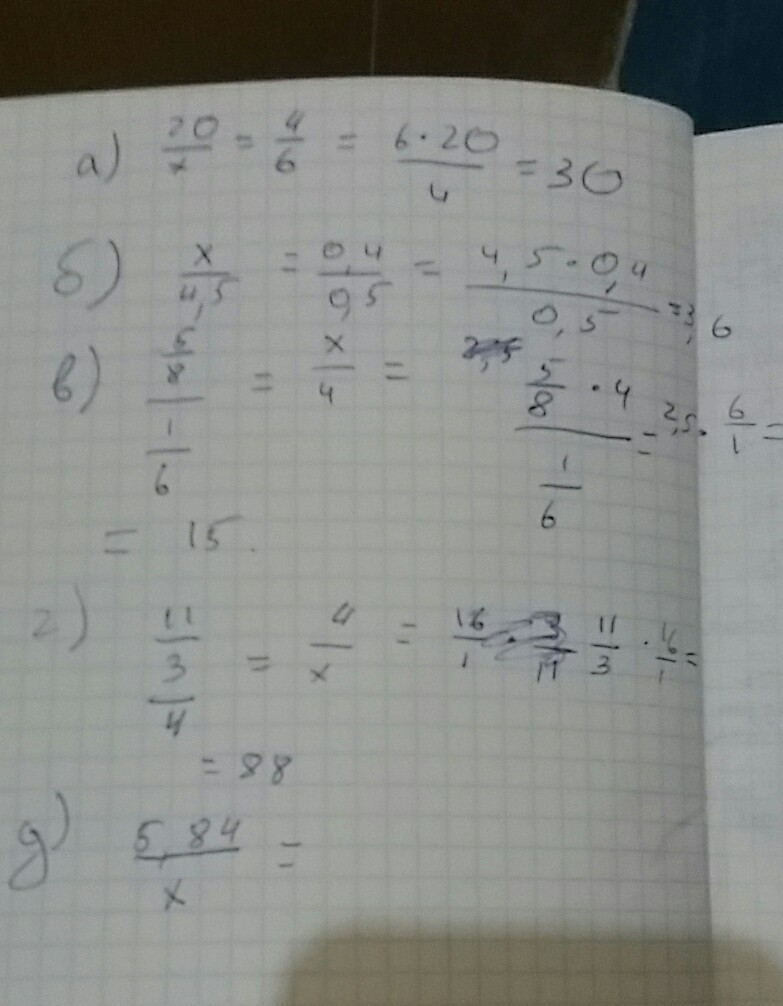 а) 20/x = 4/6 = 6·20/4 = 30
б) x/4,5 = 0,4/0,5 = 4,5·0,4/0,5 = 3,6
в) 5/8 / 1/6 = x/4 = 5/8·4 / 1/6 = 2,5·6/1 =
= 15.
г) 11/3/4 = 4/x = 16/1 · 11/3 · 16/1 =
= 88
д) 5,84/x =